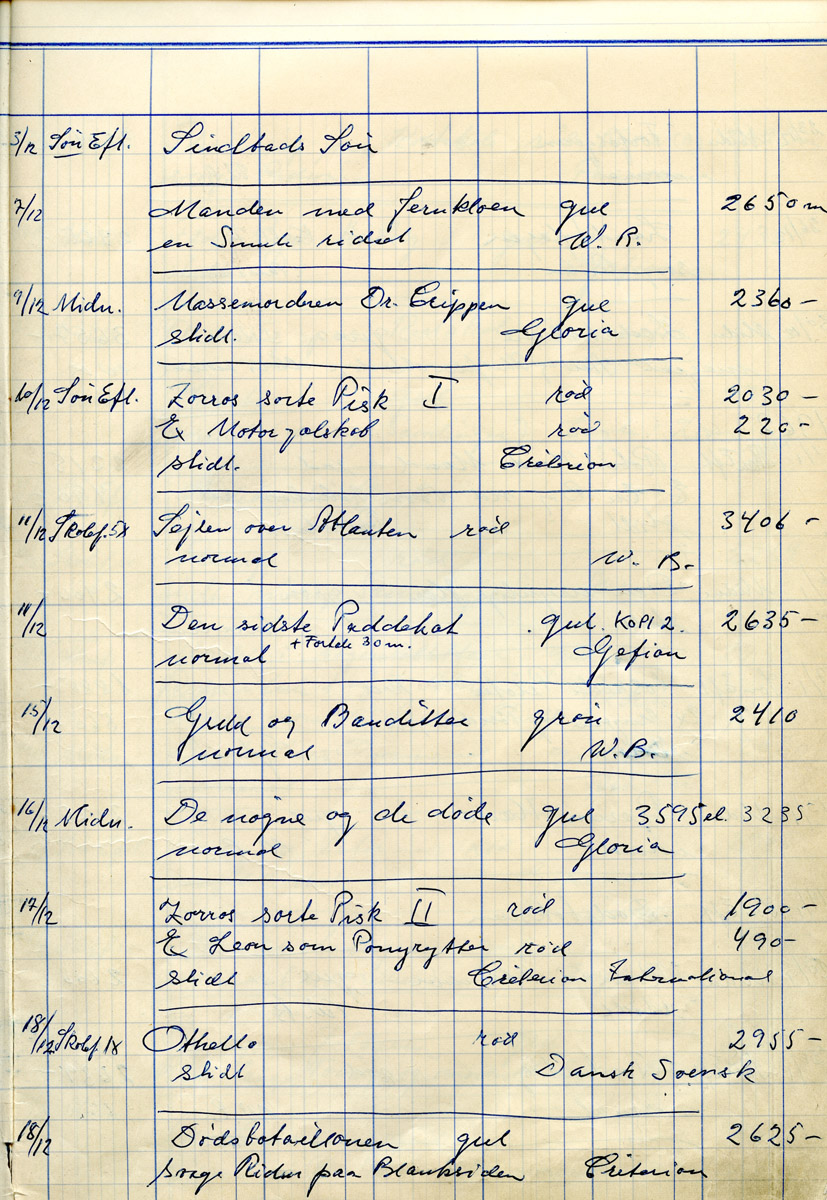 3/12 Søn Eft. Sindbads Søn
7/12 Manden med Jernkloen gul 2650 m
en Smule ridset W. B.
9/12 Midn. Massemordren Dr. Crippen gul 2360 -
slidt. Gloria
10/12 Søn Eft. Zorros sorte Pisk I rød 2030 -
Ex Motorgalskab rød 220 -
slidt. Criterion
11/12 Skolef. 5x Sejlen over Atlanten rød 3406 -
normal W. B.
11/12 Den sidste Paddehat gul. KOPI 2. 2635 -
normal + Fortek 30 m. Gefion
15/12 Guld og Banditter grøn 2410
normal W.B.
16/12 Midn. De nøgne og de døde gul 3595 el. 3235
normal Gloria
17/12 Zorros sorte Pisk II rød 1900 -
Ex Leon som Ponyrytter rød 490 -
slidt Criterion International
18/12 Skolef. 1x Othello rød 2955 -
slidt Dansk Svensk
18/12 Dødsbataillonen gul 2625 -
svage Ridser paa Blanksiden Criterion